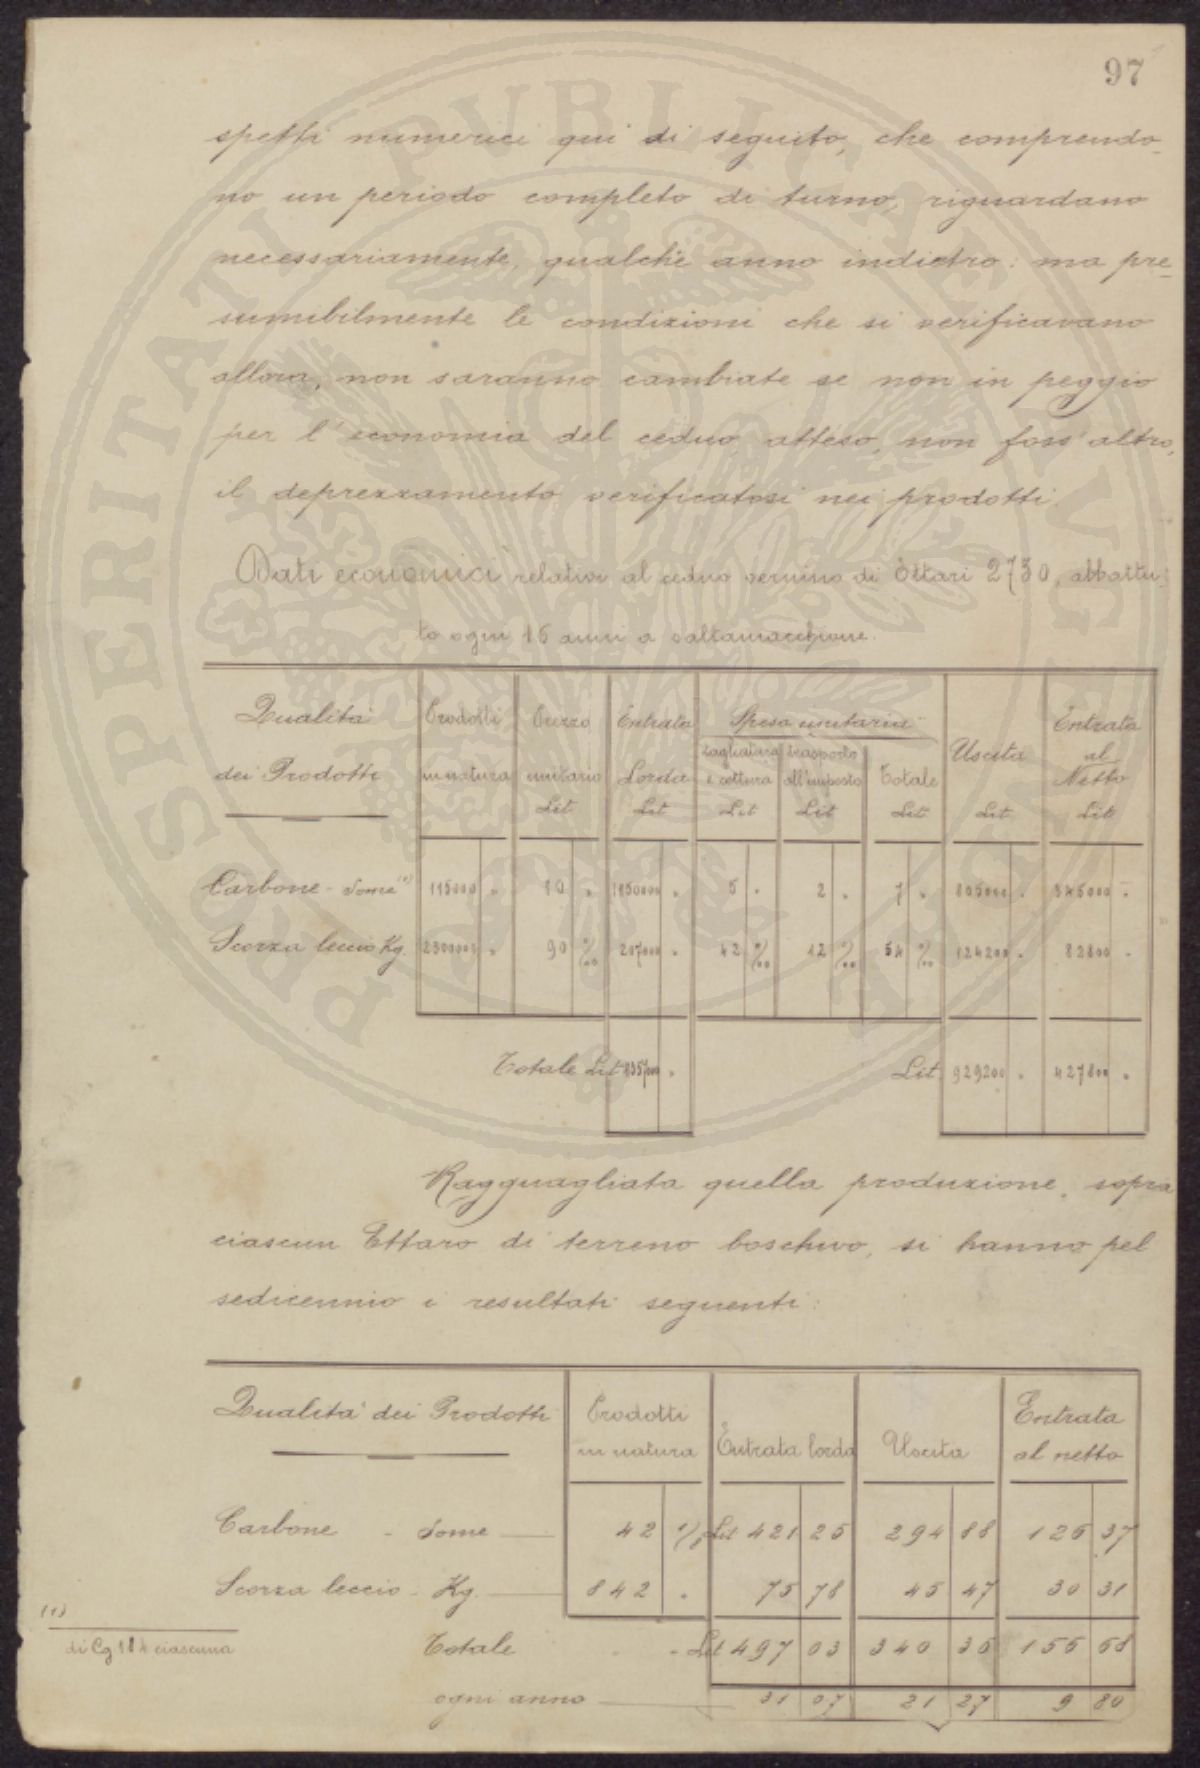 97
spetti numerici qui di seguito, che comprendo-
no un periodo completo di turno, riguardano
necessariamente, qualche anno indietro: ma pre=
sumibilmente le condizioni che si verificavano
allora, non saranno cambiate se non in peggio
per l'economia del ceduo, atteso, non foss'altro,
il deprezzamento verificatosi nei prodotti.
Dati economici relativi al ceduo di Ettari 2730, abbattu-
to ogni 16 anni a saltamacchione.
Qualità dei Prodotti | Prodotti in natura | Prezzo unitario Lit | Entrata Lorda Lit | Spesa unitaria: tagliatura e cottura Lit | trasporto all'imposto Lit | Totale Lit | Uscita Lit | Entrata al Netto Lit
Carbone - Some (1) | 115000 " | 10 " | 1150000 " | 5 " | 2 " | 7 " | 805000 " | 345000 "
Scorza leccio Kg. | 2300000 " | 90 %00 | 207000 " | 42 %00 | 12 %00 | 54 %00 | 124200 " | 82800 "
Totale Lit 1357000 " | Lit 929200 " | 427800 "
Ragguagliata quella produzione, sopra
ciascun Ettaro di terreno boschivo, si hanno pel
sedicennio i resultati seguenti:
Qualità dei Prodotti | Prodotti in natura | Entrata lorda | Uscita | Entrata al netto
Carbone - Some | 42 1/8 | Lit 421 25 | 294 88 | 126 37
Scorza leccio - Kg. | 842 " | 75 78 | 45 47 | 30 31
Totale - Lit 497 03 | 340 35 | 156 68
ogni anno 31 07 | 21 27 | 9 80
(1)
di Cg 184 ciascuna
PROSPERITATI PVBLICAE AVGENDAE